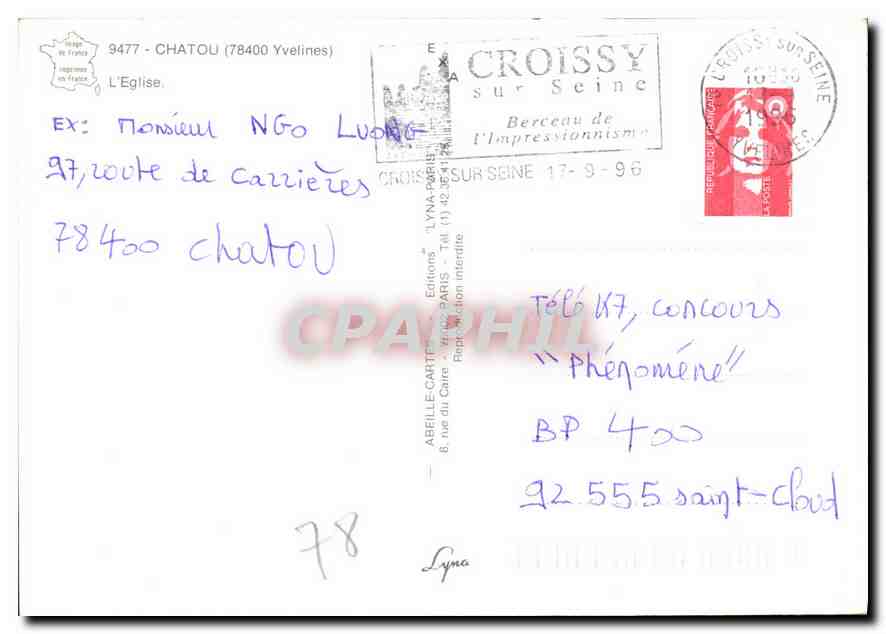 Image
de France
imprimée
en France
9477 - CHATOU (78400 Yvelines)
L'Eglise.
EX: Monsieur NGO LUONG
97, route de Carrières
78400 Chatou
E X A
CROISSY
sur Seine
Berceau de
l'Impressionnisme
CROISSY SUR SEINE 17-9-96
CROISSY SUR SEINE
1996
YVELINES
REPUBLIQUE FRANÇAISE
LA POSTE
ABEILLE-CARTES - Editions "LYNA-PARIS"
8, rue du Caire - 75002 PARIS - Tél. (1) 42.36.41.28
Reproduction interdite.
CPAPHIL
Télé K7, concours
"Phénomène"
BP 400
92 555 saint-Cloud
78
Lyna